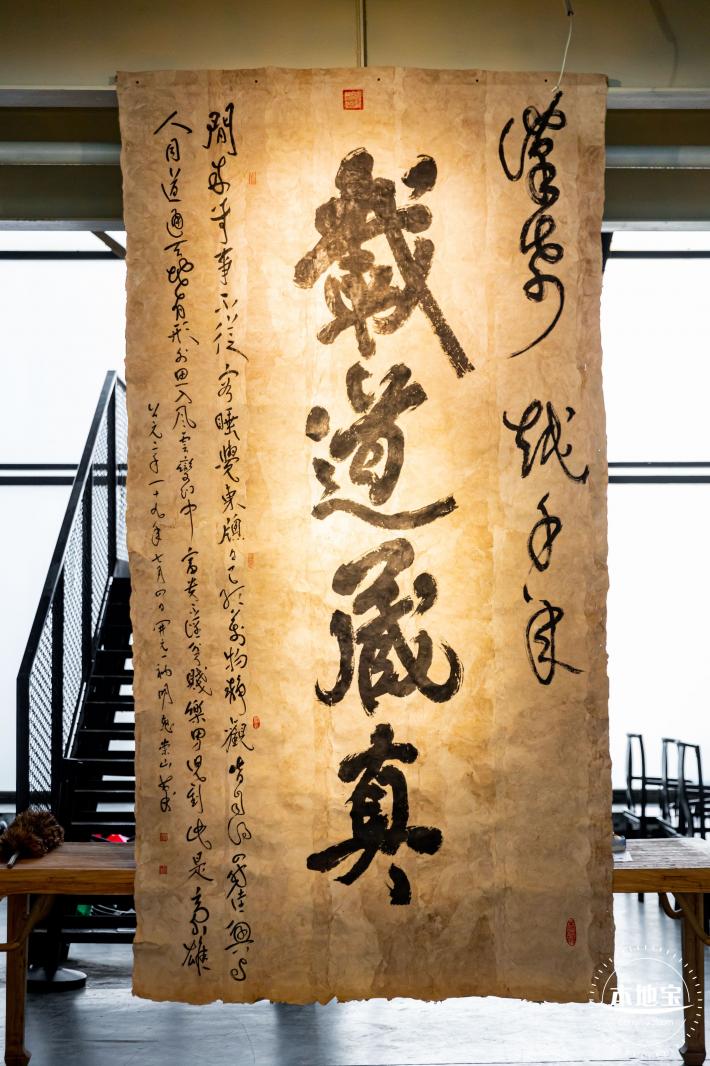 漢帋 越千年
載道藏真
閒來無事不從容睡覺東牕日已紅萬物靜觀皆自得四時佳興與
人同道通天地有形外思入風雲變幻中富貴不淫貧賤樂男兒到此是豪雄
公元二千一十九年七月四日
本地宝